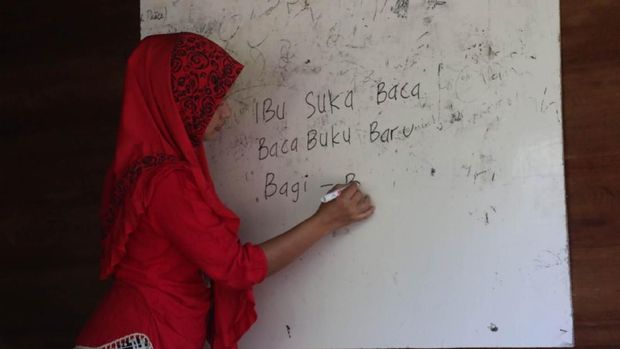 IBu SuKA BaCa
BaCa BuKu BaRu
Bagi - B